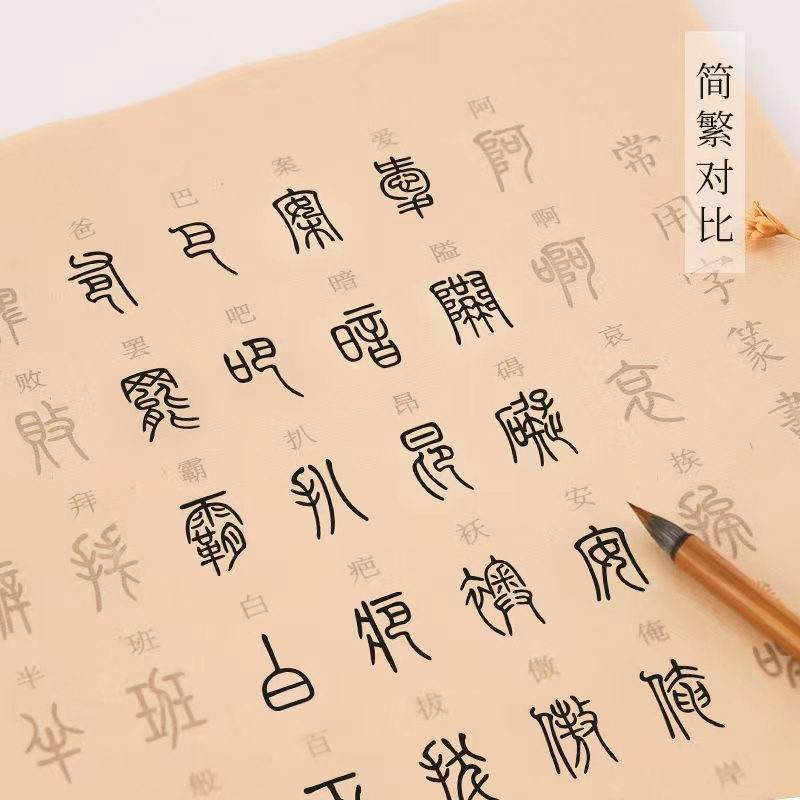 简繁对比
常用字篆書
阿啊哀挨
爱隘碍安俺岸
案暗昂袄傲
巴吧扒疤拔
爸罢霸白百
败拜班般
半